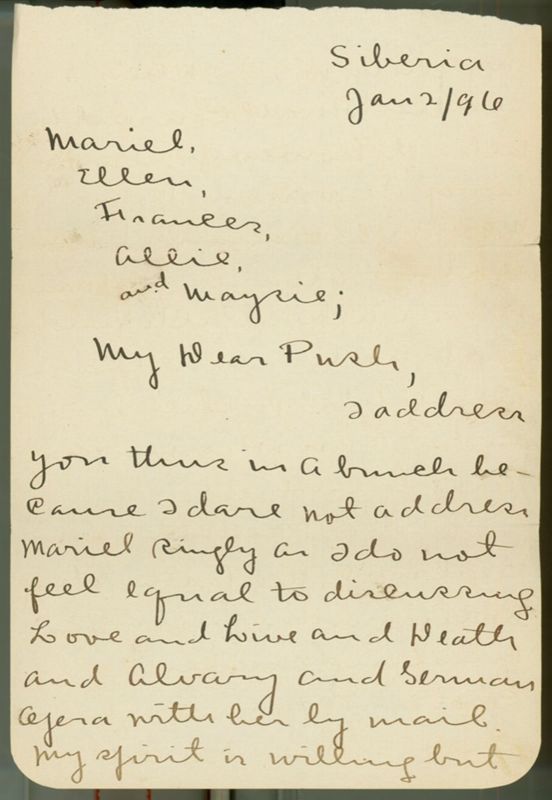 Siberia
Jan 2/96
Mariel,
Ellen,
Frances,
Allie,
and Maysie;
My Dear Push,
I address
you thus in a bunch be-
cause I dare not address
Mariel singly as I do not
feel equal to discussing
Love and Live and Death
and Alvary and German
Opera with her by mail.
My spirit is willing but